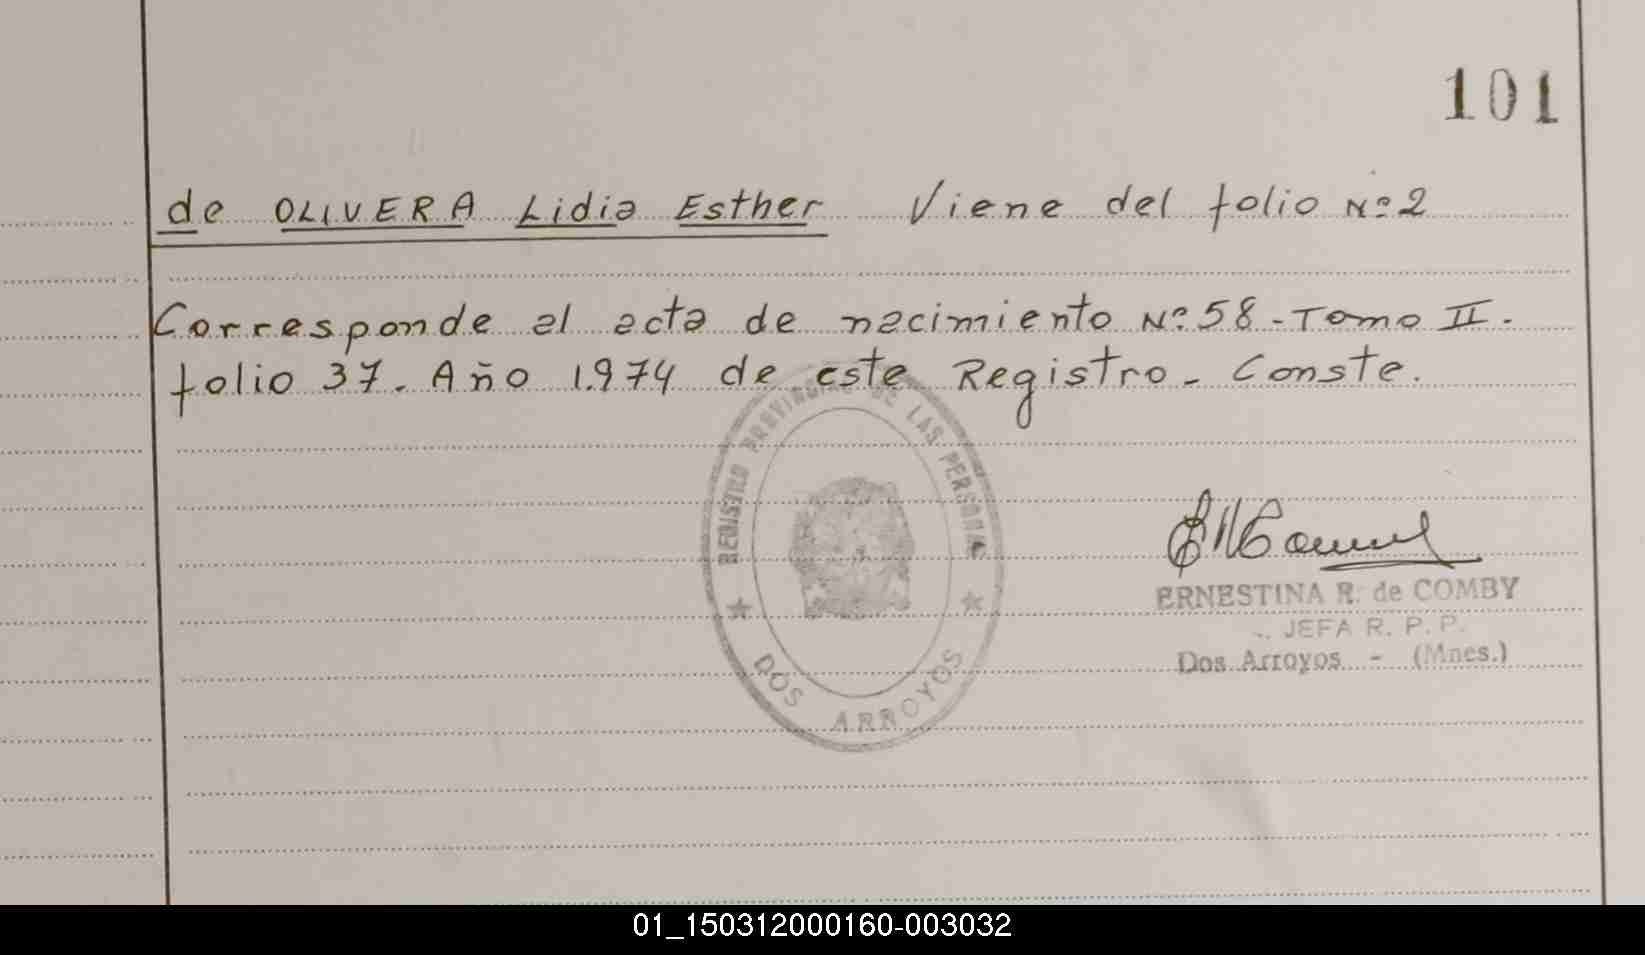 101
de OLIVERA Lidia Esther Viene del folio Nº 2
Corresponde al acta de nacimiento Nº 58 - Tomo II -
folio 37. Año 1.974 de este Registro - Conste.
REGISTRO PROVINCIAL DE LAS PERSONAS
DOS ARROYOS
ERNESTINA R. de COMBY
JEFA R. P. P.
Dos Arroyos - (Mnes.)
01_150312000160-003032